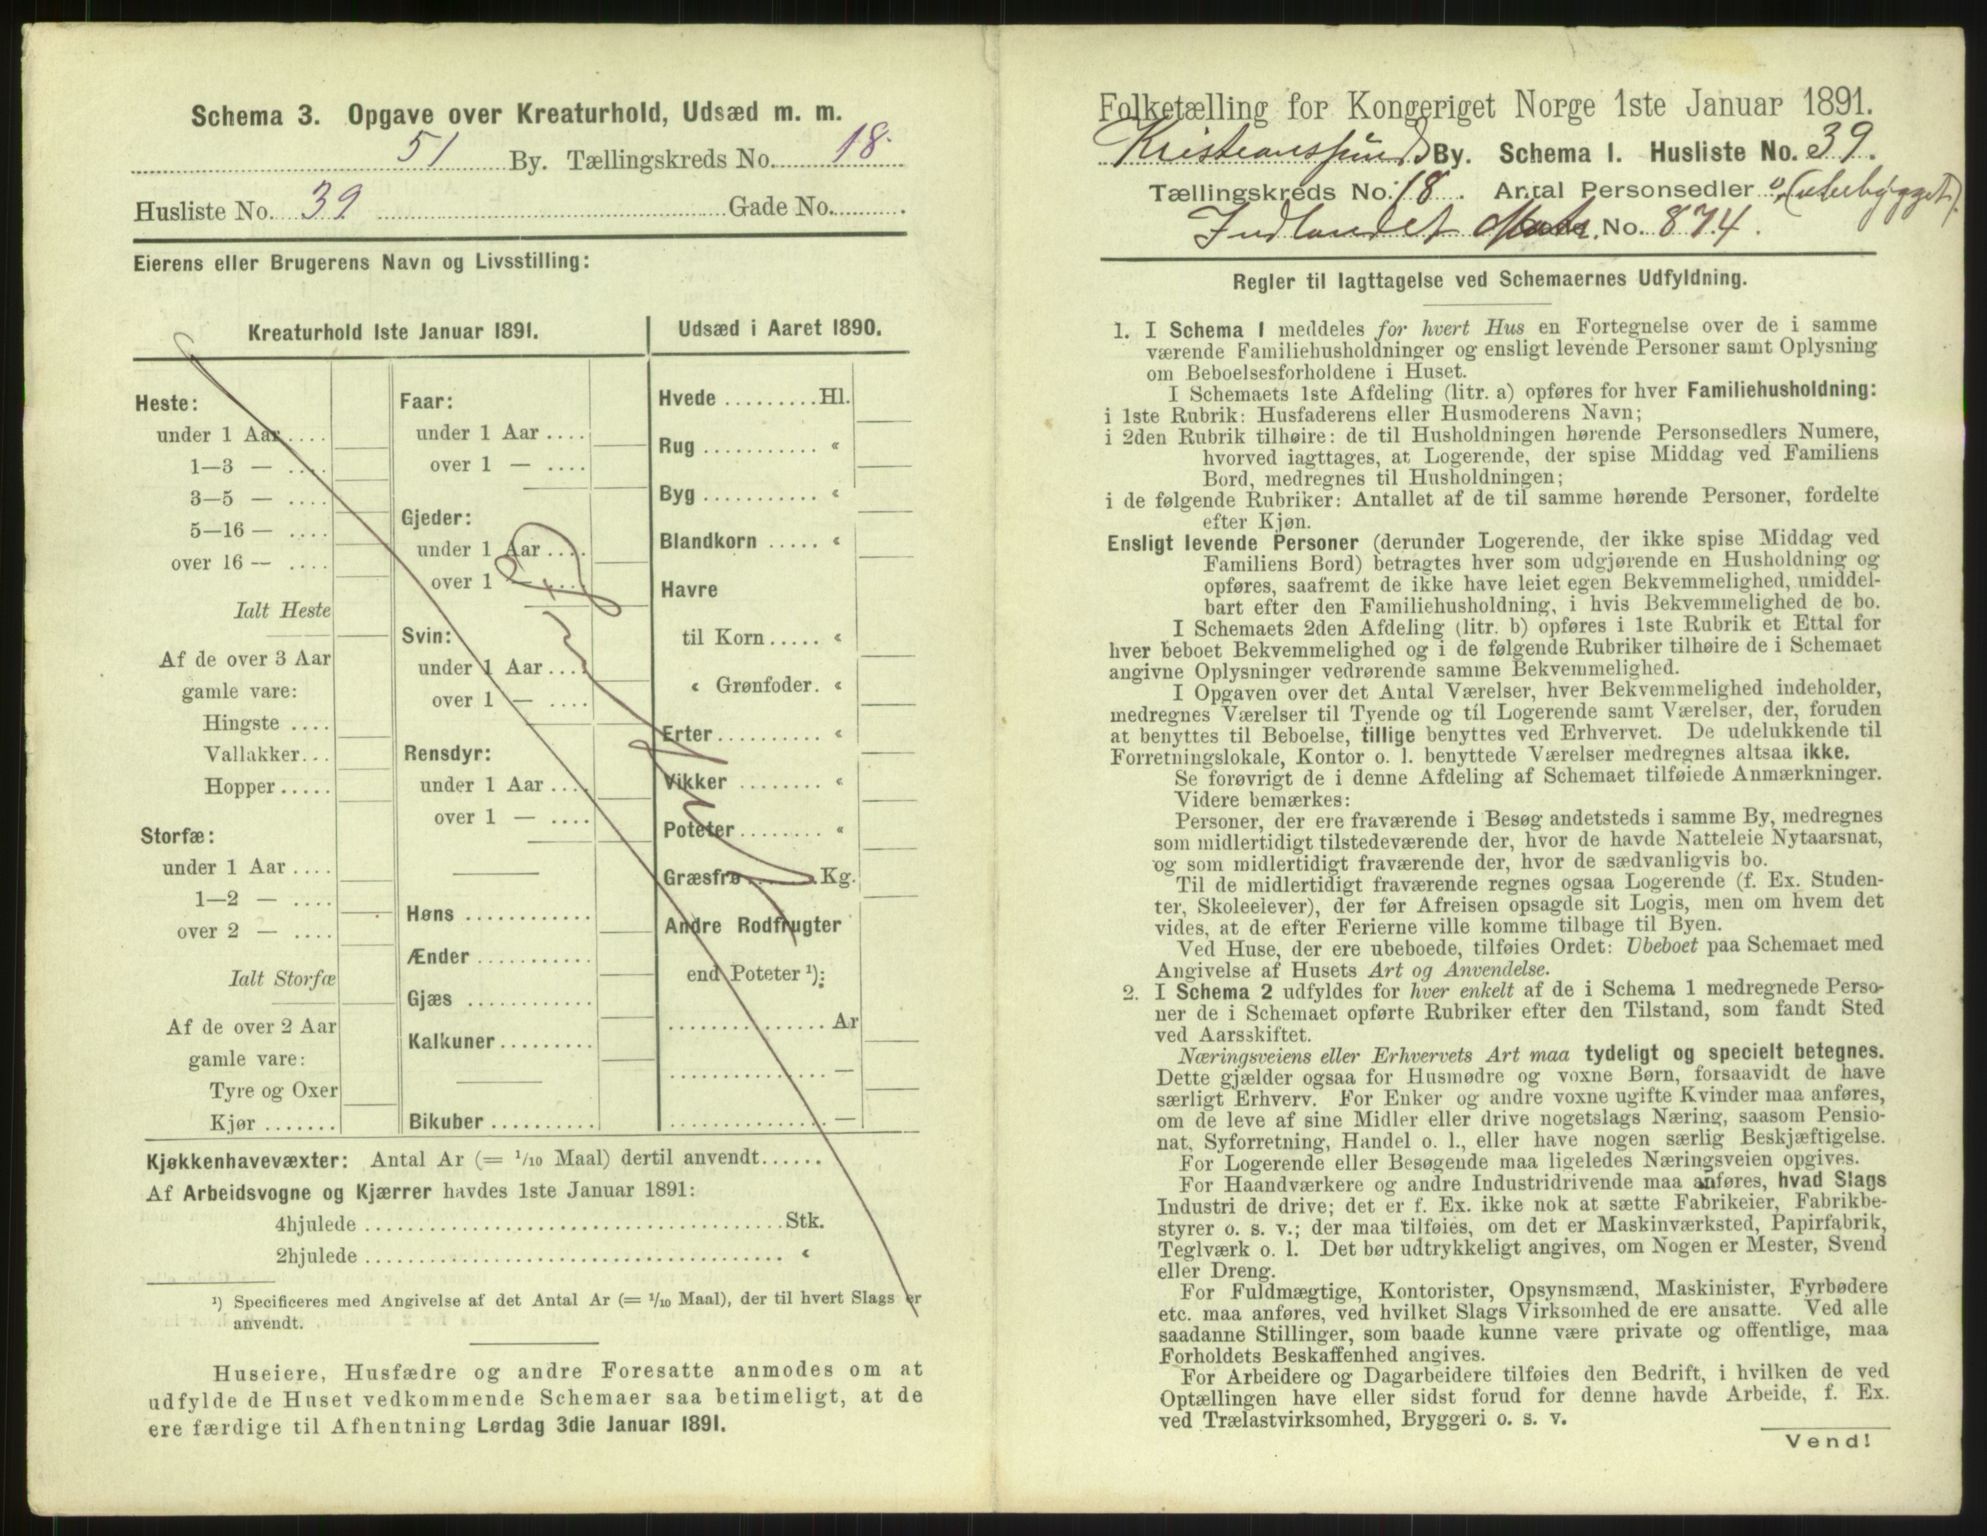 Schema 3. Opgave over Kreaturhold, Udsæd m. m.
51 By. Tællingskreds No. 18.
Husliste No. 39 Gade No.
Eierens eller Brugerens Navn og Livsstilling:
Kreaturhold 1ste Januar 1891.
Heste:
under 1 Aar....
1—3 — ....
3—5 — ....
5—16 — ....
over 16 — ....
Ialt Heste
Af de over 3 Aar
gamle vare:
Hingste ....
Vallakker...
Hopper.....
Storfæ:
under 1 Aar....
1—2 — ....
over 2 — ....
Ialt Storfæ
Af de over 2 Aar
gamle vare:
Tyre og Oxer
Kjør.......
Faar:
under 1 Aar....
over 1 — ....
Gjeder:
under 1 Aar....
over 1 — ....
Svin:
under 1 Aar....
over 1 — ....
Rensdyr:
under 1 Aar....
over 1 — ....
Høns ............
Ænder ...........
Gjæs ............
Kalkuner.........
Bikuber ..........
Udsæd i Aaret 1890.
Hvede .........Hl.
Rug ........... «
Byg ........... «
Blandkorn ..... «
Havre
til Korn..... «
« Grønfoder. «
Erter.......... «
Vikker ........ «
Poteter........ «
Græsfrø.......Kg.
Andre Rodfrugter
end Poteter ¹):
...............Ar
............... —
............... —
Kjøkkenhavevæxter: Antal Ar (= 1/10 Maal) dertil anvendt......
Af Arbeidsvogne og Kjærrer havdes 1ste Januar 1891:
4hjulede ........................................Stk.
2hjulede ........................................ «
¹) Specificeres med Angivelse af det Antal Ar (= 1/10 Maal), der til hvert Slags er
anvendt.
Huseiere, Husfædre og andre Foresatte anmodes om at
udfylde de Huset vedkommende Schemaer saa betimeligt, at de
ere færdige til Afhentning Lørdag 3die Januar 1891.
Folketælling for Kongeriget Norge 1ste Januar 1891.
Kristianssund By. Schema 1. Husliste No. 39.
Tællingskreds No. 18. Antal Personsedler 0. (uterbygget).
Indlandet Matr. No. 874.
Regler til Iagttagelse ved Schemaernes Udfyldning.
1. I Schema 1 meddeles for hvert Hus en Fortegnelse over de i samme
værende Familiehusholdninger og ensligt levende Personer samt Oplysning
om Beboelsesforholdene i Huset.
I Schemaets 1ste Afdeling (litr. a) opføres for hver Familiehusholdning:
i 1ste Rubrik: Husfaderens eller Husmoderens Navn;
i 2den Rubrik tilhøire: de til Husholdningen hørende Personsedlers Numere,
hvorved iagttages, at Logerende, der spise Middag ved Familiens
Bord, medregnes til Husholdningen;
i de følgende Rubriker: Antallet af de til samme hørende Personer, fordelte
efter Kjøn.
Ensligt levende Personer (derunder Logerende, der ikke spise Middag ved
Familiens Bord) betragtes hver som udgjørende en Husholdning og
opføres, saafremt de ikke have leiet egen Bekvemmelighed, umiddel-
bart efter den Familiehusholdning, i hvis Bekvemmelighed de bo.
I Schemaets 2den Afdeling (litr. b) opføres i 1ste Rubrik et Ettal for
hver beboet Bekvemmelighed og i de følgende Rubriker tilhøire de i Schemaet
angivne Oplysninger vedrørende samme Bekvemmelighed.
I Opgaven over det Antal Værelser, hver Bekvemmelighed indeholder,
medregnes Værelser til Tyende og til Logerende samt Værelser, der, foruden
at benyttes til Beboelse, tillige benyttes ved Erhvervet. De udelukkende til
Forretningslokale, Kontor o. l. benyttede Værelser medregnes altsaa ikke.
Se forøvrigt de i denne Afdeling af Schemaet tilføiede Anmærkninger.
Videre bemærkes:
Personer, der ere fraværende i Besøg andetsteds i samme By, medregnes
som midlertidigt tilstedeværende der, hvor de havde Natteleie Nytaarsnat,
og som midlertidigt fraværende der, hvor de sædvanligvis bo.
Til de midlertidigt fraværende regnes ogsaa Logerende (f. Ex. Studen-
ter, Skoleelever), der før Afreisen opsagde sit Logis, men om hvem det
vides, at de efter Ferierne ville komme tilbage til Byen.
Ved Huse, der ere ubeboede, tilføies Ordet: Ubeboet paa Schemaet med
Angivelse af Husets Art og Anvendelse.
2. I Schema 2 udfyldes for hver enkelt af de i Schema 1 medregnede Perso-
ner de i Schemaet opførte Rubriker efter den Tilstand, som fandt Sted
ved Aarsskiftet.
Næringsveiens eller Erhvervets Art maa tydeligt og specielt betegnes.
Dette gjælder ogsaa for Husmødre og voxne Børn, forsaavidt de have
særligt Erhverv. For Enker og andre voxne ugifte Kvinder maa anføres,
om de leve af sine Midler eller drive nogetslags Næring, saasom Pensio-
nat, Syforretning, Handel o. l., eller have nogen særlig Beskjæftigelse.
For Logerende eller Besøgende maa ligeledes Næringsveien opgives.
For Haandværkere og andre Industridrivende maa anføres, hvad Slags
Industri de drive; det er f. Ex. ikke nok at sætte Fabrikeier, Fabrikbe-
styrer o. s. v.; der maa tilføies, om det er Maskinværksted, Papirfabrik,
Teglværk o. l. Det bør udtrykkeligt angives, om Nogen er Mester, Svend
eller Dreng.
For Fuldmægtige, Kontorister, Opsynsmænd, Maskinister, Fyrbødere
etc. maa anføres, ved hvilket Slags Virksomhed de ere ansatte. Ved alle
saadanne Stillinger, som baade kunne være private og offentlige, maa
Forholdets Beskaffenhed angives.
For Arbeidere og Dagarbeidere tilføies den Bedrift, i hvilken de ved
Optællingen have eller sidst forud for denne havde Arbeide, f. Ex.
ved Trælastvirksomhed, Bryggeri o. s. v.
Vend!